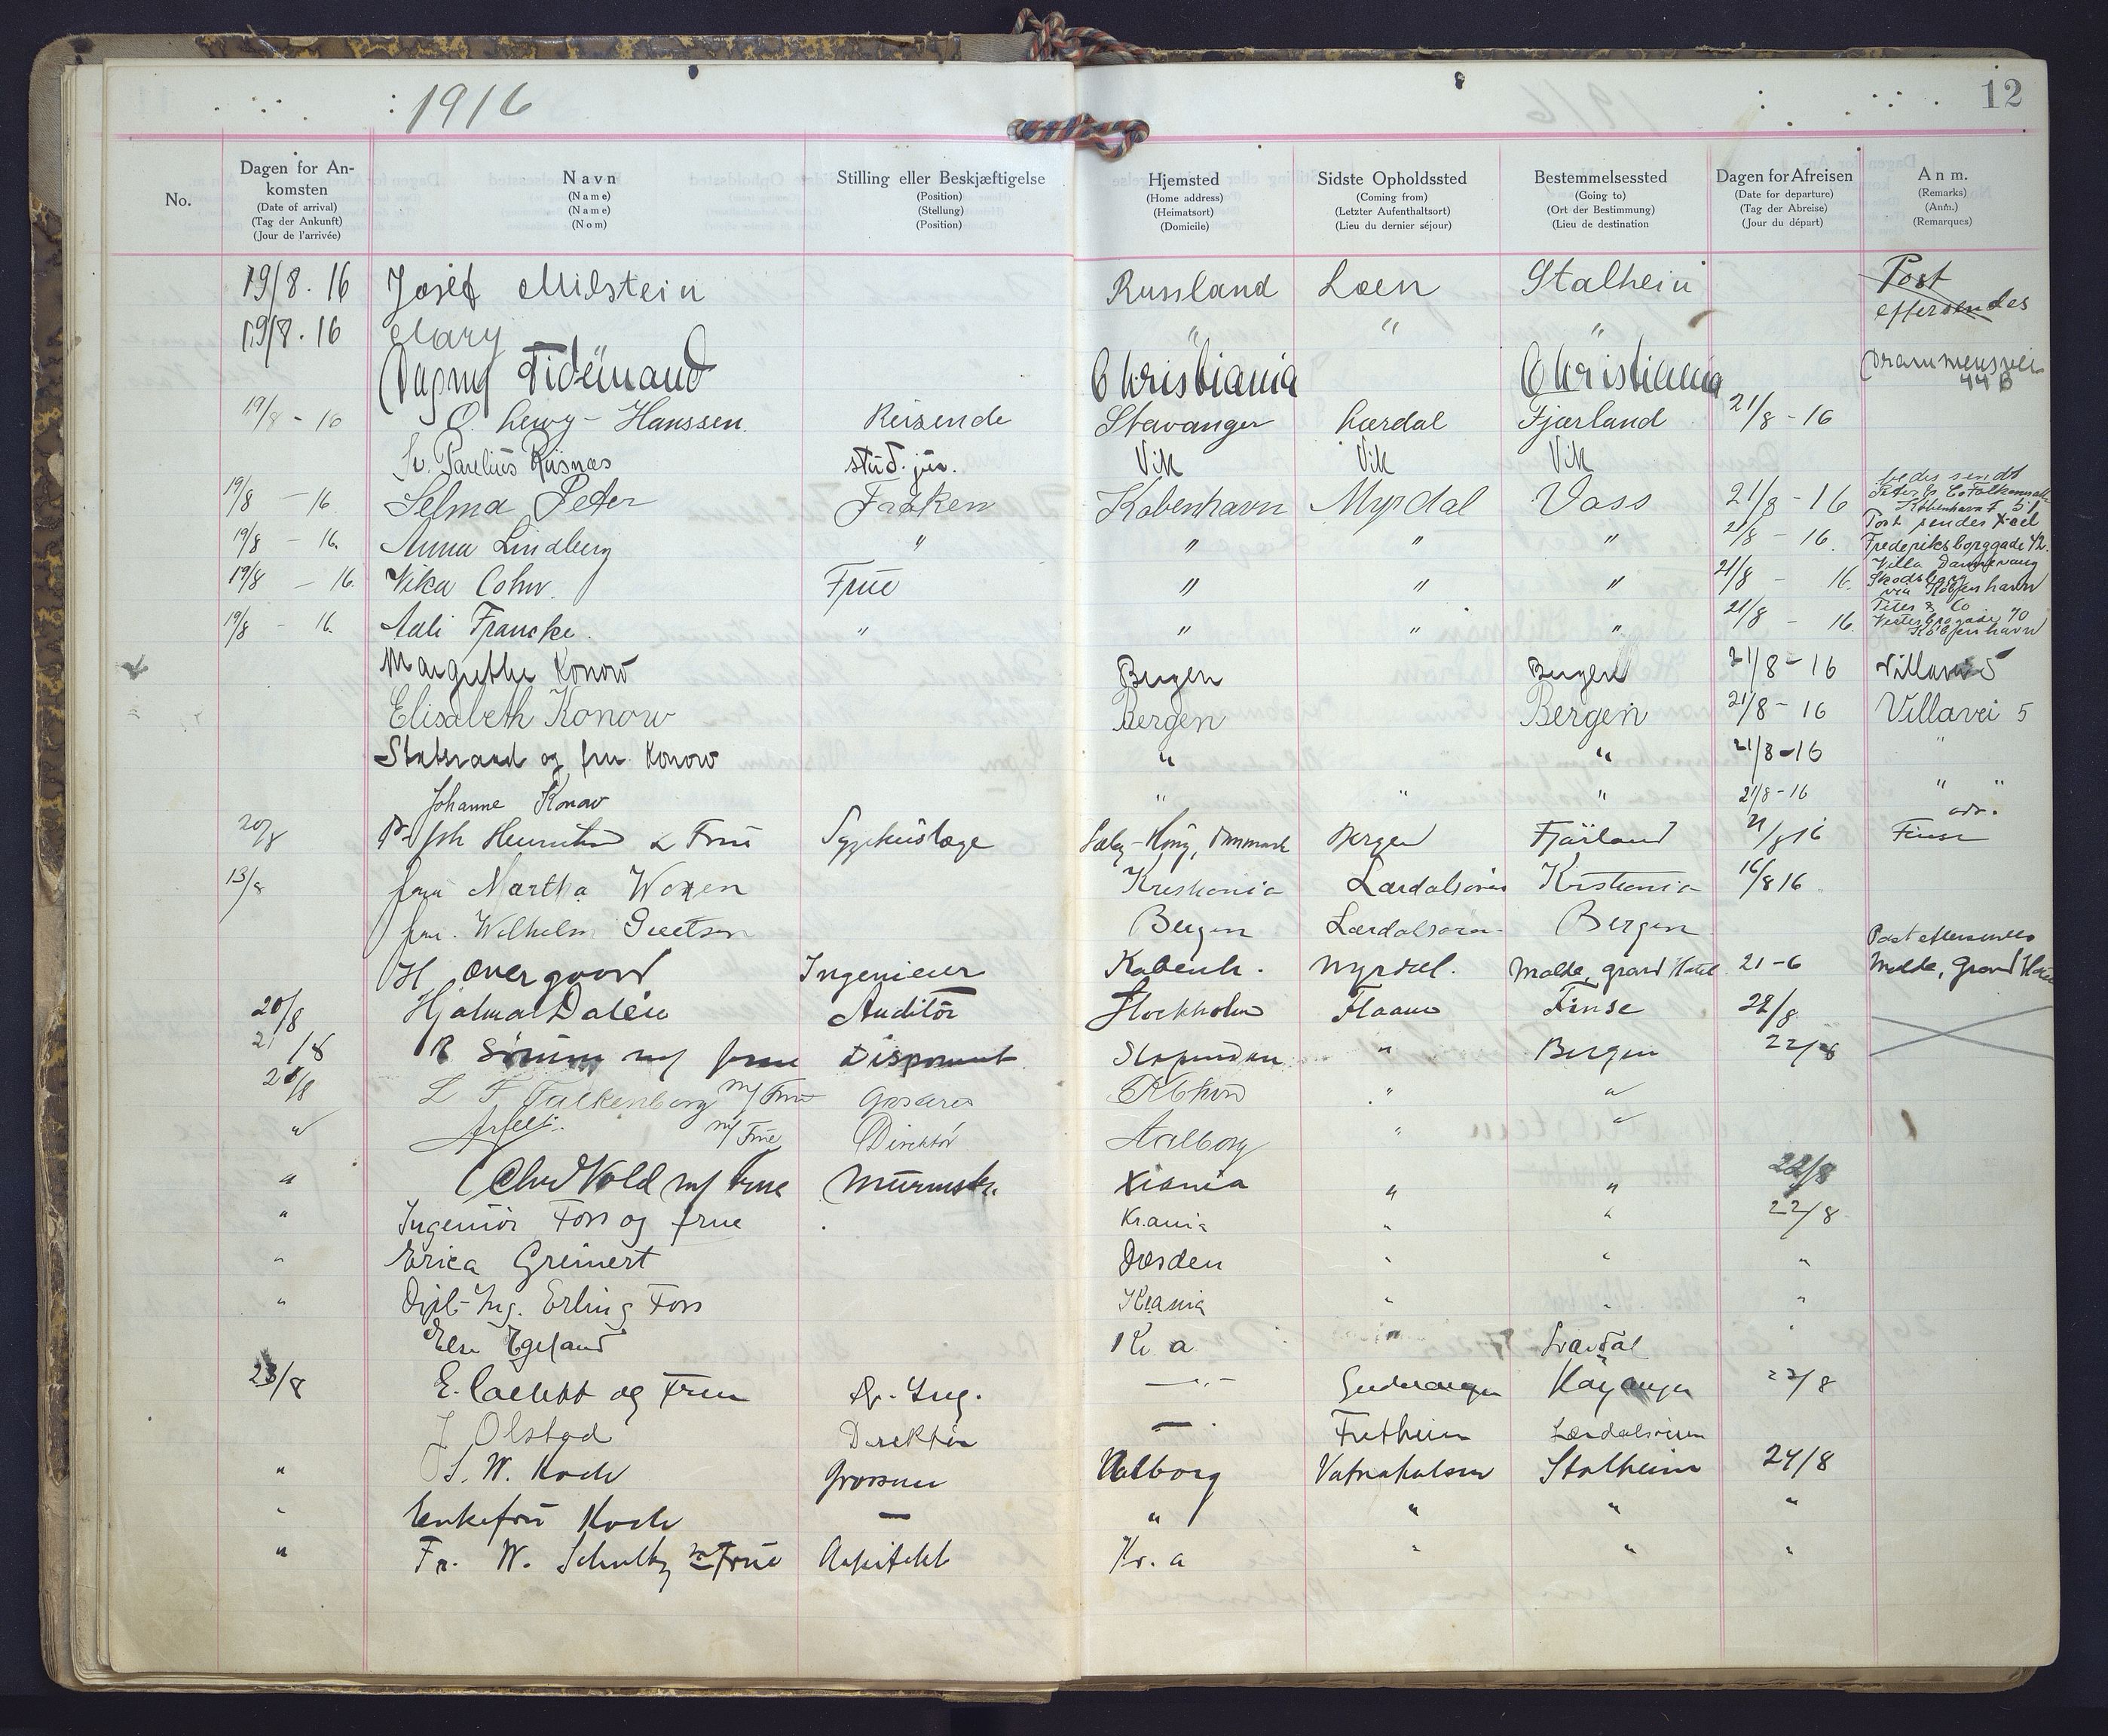 1916
12
No. Dagen for An-komsten (Date of arrival) (Tag der Ankunft) (Jour de l'arrivée) Navn (Name) (Name) (Nom) Stilling eller Beskjæftigelse (Position) (Stellung) (Position) Hjemsted (Home address) (Heimatsort) (Domicile) Sidste Opholdssted (Coming from) (Letzter Aufenthaltsort) (Lieu du dernier séjour) Bestemmelsessted (Going to) (Ort der Bestimmung) (Lieu de destination Dagen for Afreisen (Date for departure) (Tag der Abreise) (Jour du départ) Anm. (Remarks) (Anm.) (Remarques)
19/8. 16 Josef Milstein Russland Loen Stalheim Post eftersendes
19/8. 16 Mary " " "
Dagny Tidemand Christiania Christiania Drammensvei 44 B
19/8 - 16 O. Lewy-Hanssen Reisende Stavanger Lærdal Fjærland 21/8 - 16
Sv. Paulius Risnæs stud. jur. Vik Vik Vik
19/8 - 16 Selma Peter Frøken København Myrdal Voss 21/8 - 16 bedes sendt
19/8 - 16. Anna Lindberg " " " " 21/8 - 16. Post sendes Frederiksborggade 42.
19/8 - 16. Vika Cohn. Frue " " " 21/8 - 16. Villa Skodsborg via København
19/8 - 16. Adli Francke. " " " " 21/8 - 16. Peter & Co Vesterbrogade 70 København
Margrethe Konow Bergen Bergen 21/8 - 16 Villavei 5
Elisabeth Konow Bergen Bergen 21/8 - 16 Villavei 5
Statsraad og fru Konow " " 21/8 - 16 "
Johanne Konow " " " 21/8 - 16 " "
20/8 & Frue Sygehuslæge Danmark Bergen Fjärland 21/8 16 adr. Finse
13/8 fru Martha Woxen Kristiania Lærdalsøren Kristiania 16/8 16
fru. Wilhelm Bergen Lærdalsøren Bergen
H Overgaard Ingenieur Kabenh. Myrdal. Molde, Grand Hotel 21-6 Post eftersendes Molde, Grand Hotel
20/8 Hjalmar Dalén Auditör Stockholm Flaam Finse 22/8
21/8 m/ frue Disponent " Bergen 22/8
21/8 L F Falkenberg m/ Frue Kbhvn " "
" m/ Frue Direktør Aalborg " "
" Chr Vold m/ Frue Murmstr. Xiania " " 22/8
" Ingeniør Foss og frue Kr.ania " " 22/8
" Erica Greinert Dresden " " "
" Dipl-Ing. Erling Foss Krania " " "
Else Egeland Kr a " "
23/8 E. og Frue Dr. Ing. — " — Gudvangen 22/8
J Olstad Direktør — Fretheim Lærdalsøren
" S. W. Koch Grosserer Aalborg Vatnahalsen Stalheim 24/8
" Enkefru Koch — " " " "
" Fr. W. Schultz m Frue Arkitekt Kr. a " " "